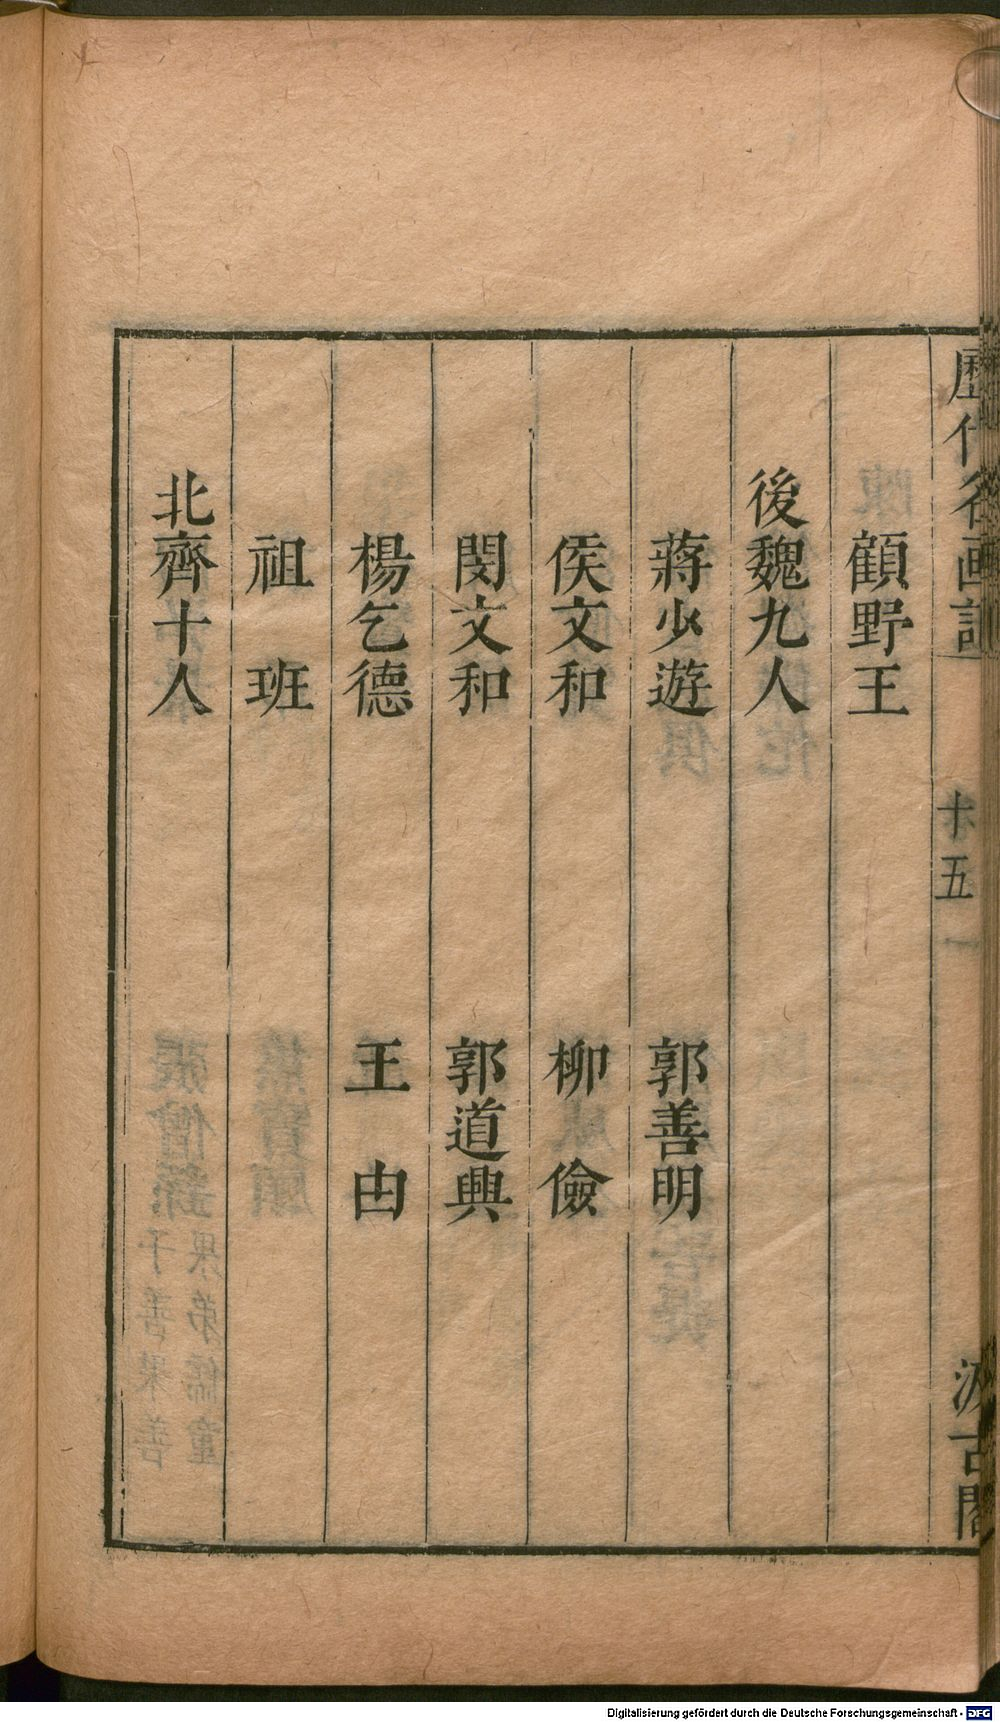 歷代名画記 十五 汲古閣
顧野王
後魏九人
蔣少遊 郭善明
侯文和 柳儉
閔文和 郭道興
楊乞德 王由
祖班
北齊十人
Digitalisierung gefördert durch die Deutsche Forschungsgemeinschaft - DFG